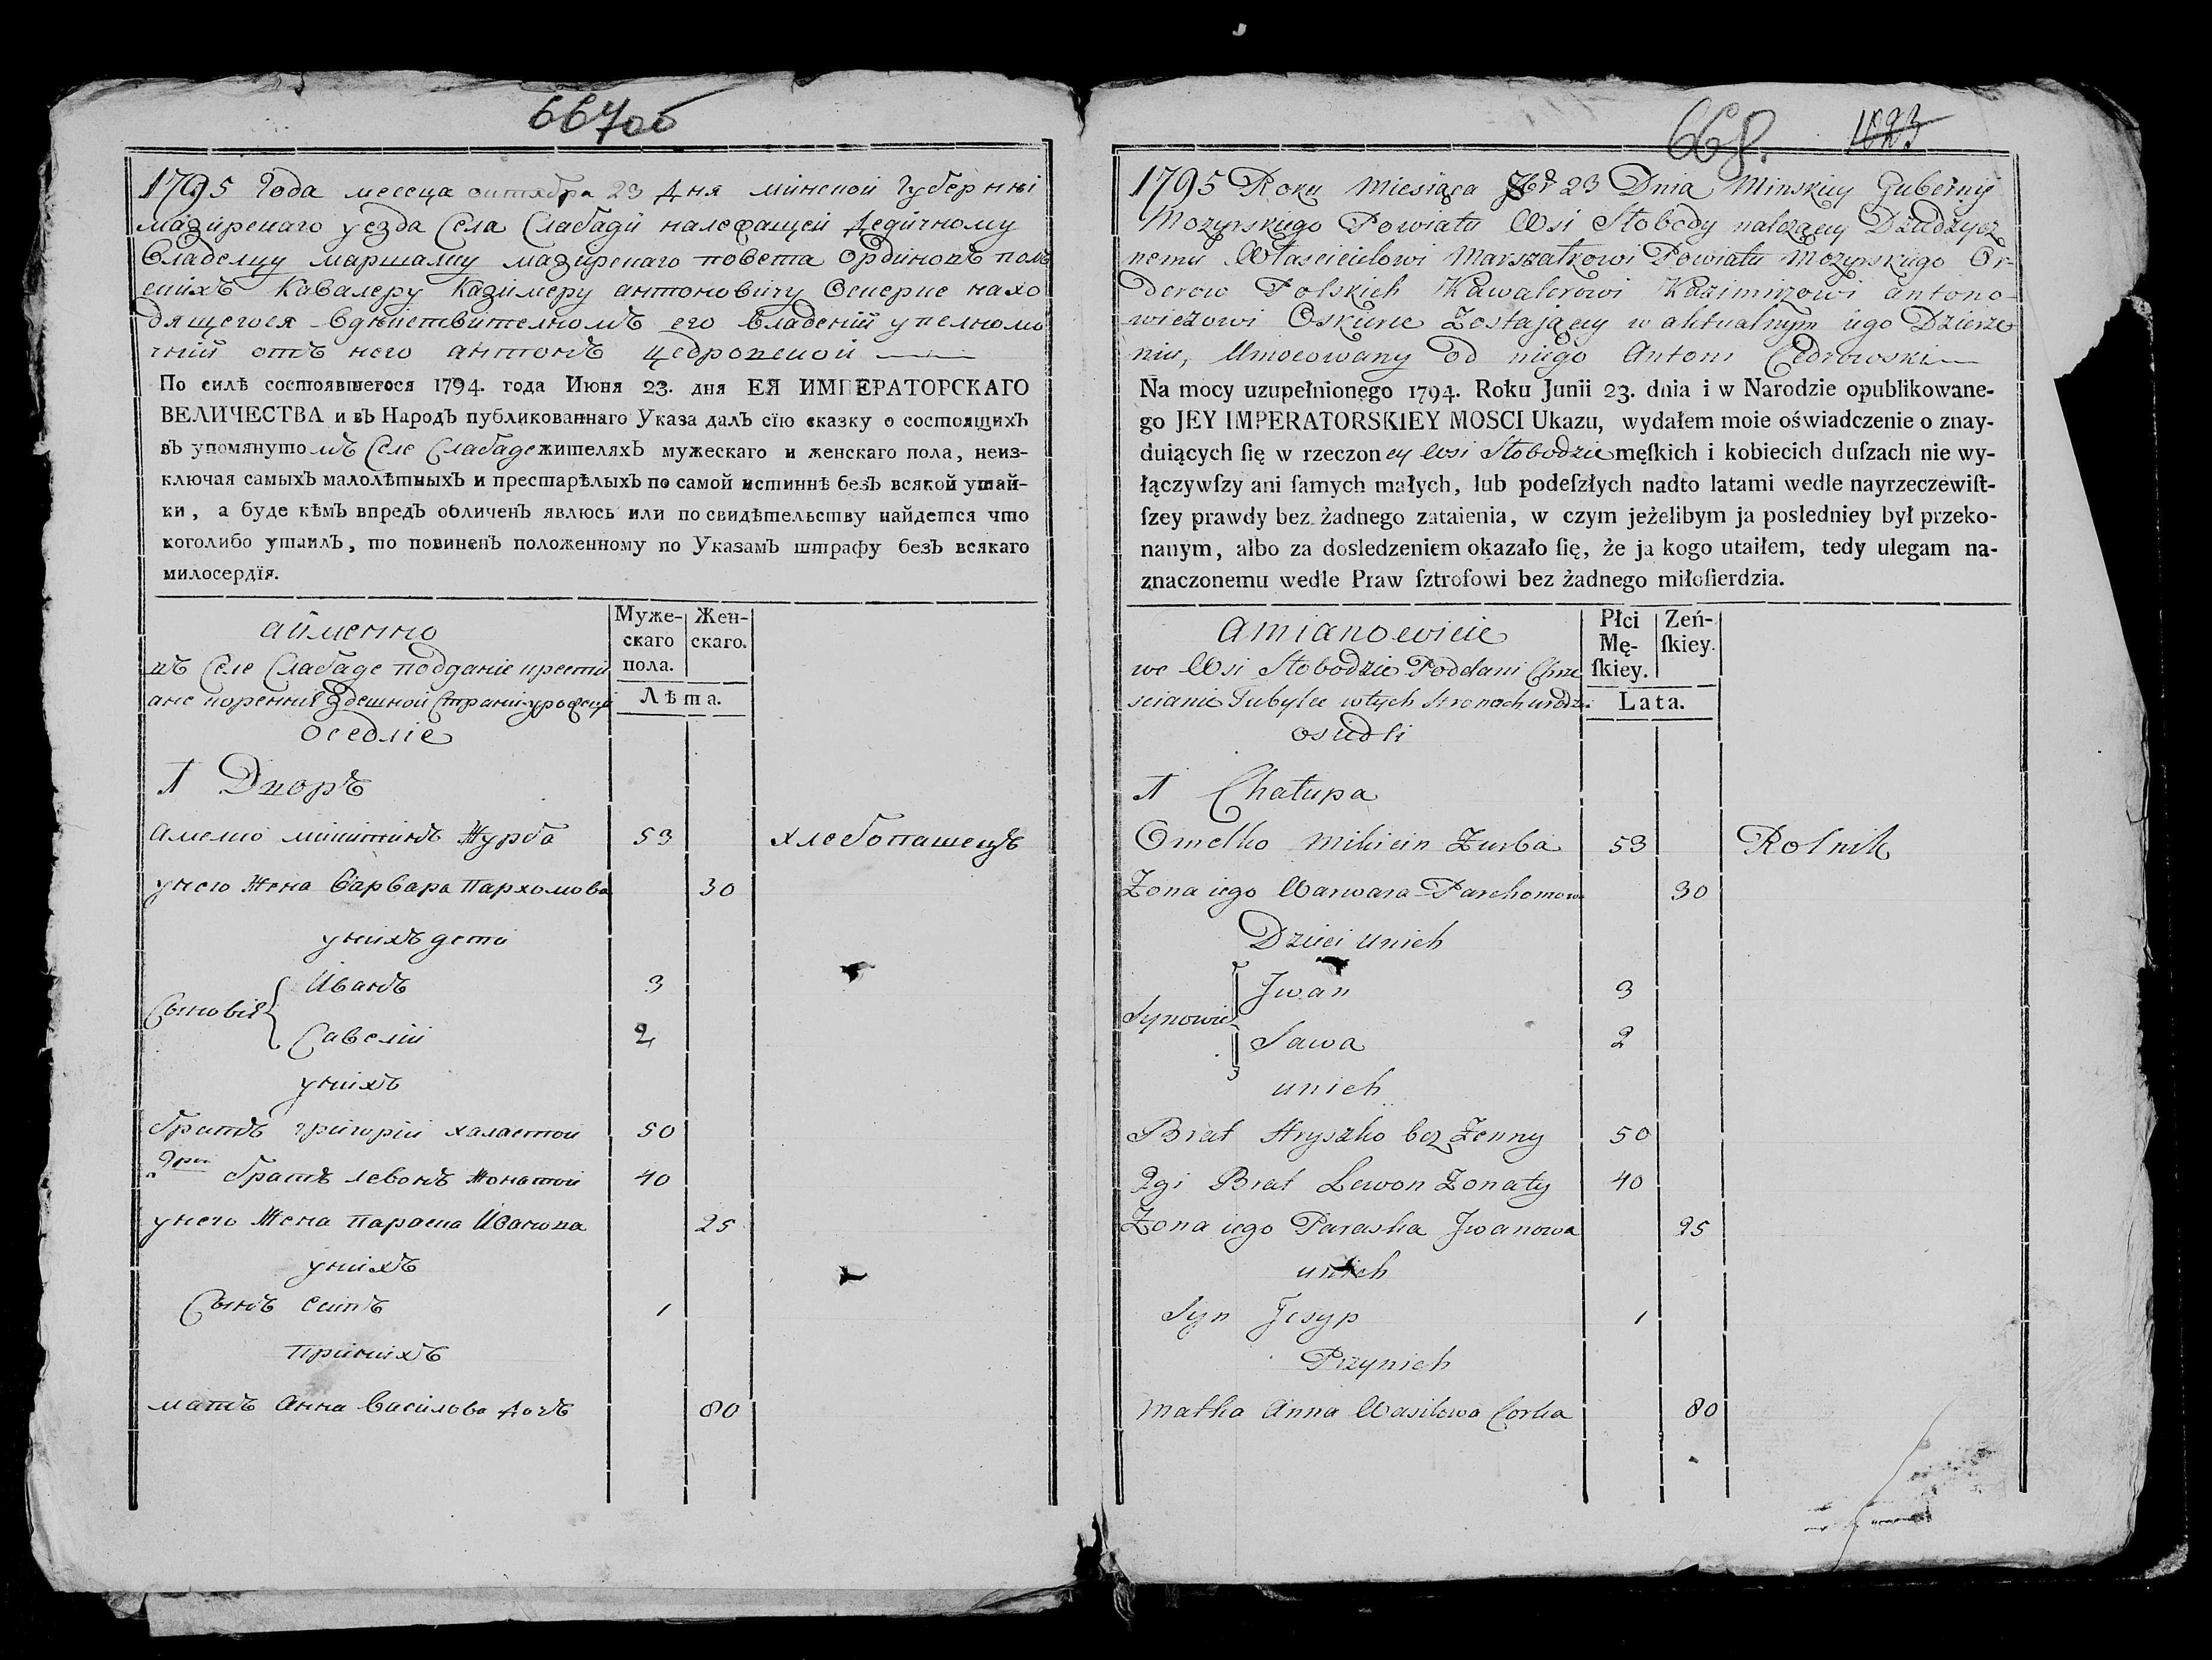 667об
1795 Года месеца октября 23 Дня минской Губернии
мазирского уезда Села Слабади належащей Дедичному
Владелцу маршалку мазирскаго повета Ординовъ пол
скихъ Кавалеру Казимеру антоновичу Оскерке нахо
дящегося вдействителномъ его владении уполномо
чний отъ него антонъ Цедровской
По силѣ состоявшегося 1794. года Июня 23. дня ЕЯ ИМПЕРАТОРСКАГО
ВЕЛИЧЕСТВА и въ Народъ публикованнаго Указа далъ сїю сказку о состоящихъ
въ упомянутомъ Селе Слабаде жителяхъ мужескаго и женскаго пола, неиз-
ключая самыхъ малолѣтныхъ и престарѣлыхъ по самой истиннѣ безъ всякой утай-
ки, а буде кѣмъ впредъ обличенъ явлюсь или по свидѣтельству найдется что
коголибо утаилъ, то повиненъ положенному по Указамъ штрафу безъ всякаго
милосердїя.
аименно
въ Селе Слабаде подданіе крести
ане коренние Здешной Страни
оседліе
Муже-
скаго
пола.
Жен-
скаго.
Лѣта.
1 Дворъ
Амелко микитинъ Журба 53 хлебопашецъ
унего Жена Варвара Пархомова 30
унихъ дети
Сыновія
Иванъ 3
Савелій 2
унихъ
братъ григорій халастой 50
2гой братъ левонъ Жонатой 40
унего Жена параска Иванова 25
унихъ
Сынъ есипъ 1
принихъ
мать Анна Василова дочъ 80
668. 1023
1795 Roku Miesiąca 23 Dnia Minskiey Gubernij
Mozyrskiego Powiatu Wsi Słobody należący Dziedzycz
nemu Właścicielowi Marszałkowi Powiatu Mozyrskiego Or-
derow Polskich Kawalerowi Kazimirzowi antono-
wiczowi Oskierce Zostaiący w aktualnym iego Dzierże
niu, Umocowany od niego Antoni Cedrowski
Na mocy uzupełnionego 1794. Roku Junii 23. dnia i w Narodzie opublikowane-
go JEY IMPERATORSKIEY MOSCI Ukazu, wydałem moie oświadczenie o znay-
duiących ſię w rzeczoney Wsi Słobodzie męſkich i kobiecich duſzach nie wy-
łączywſzy ani ſamych małych, lub podeſzłych nadto latami wedle nayrzeczewiſt-
ſzey prawdy bez żadnego zataienia, w czym jeżelibym ja posledniey był przeko-
nanym, albo za dosledzeniem okazało ſię, że ja kogo utaiłem, tedy ulegam na-
znaczonemu wedle Praw ſztrofowi bez żadnego miłoſierdzia.
Amianowicie
we Wsi Słobodzie Poddani Chrze
scianie Tubylce wtych Stronach urodz.
osiedli
Płci
Mę-
ſkiey.
Zeń-
ſkiey.
Lata.
1 Chałupa
Omelko Mikicin Zurba 53 Rolnik
Zona iego Warwara Parchomowa 30
Dzieci unich
Synowie
Jwan 3
Sawa 2
unich
Brat Hryszko bez Zenny 50
2gi Brat Lewon Zonaty 40
Zona iego Paraska Jwanowa 25
unich
Syn Jesyp 1
Przynich
Matka Anna Wasilowa Corka 80